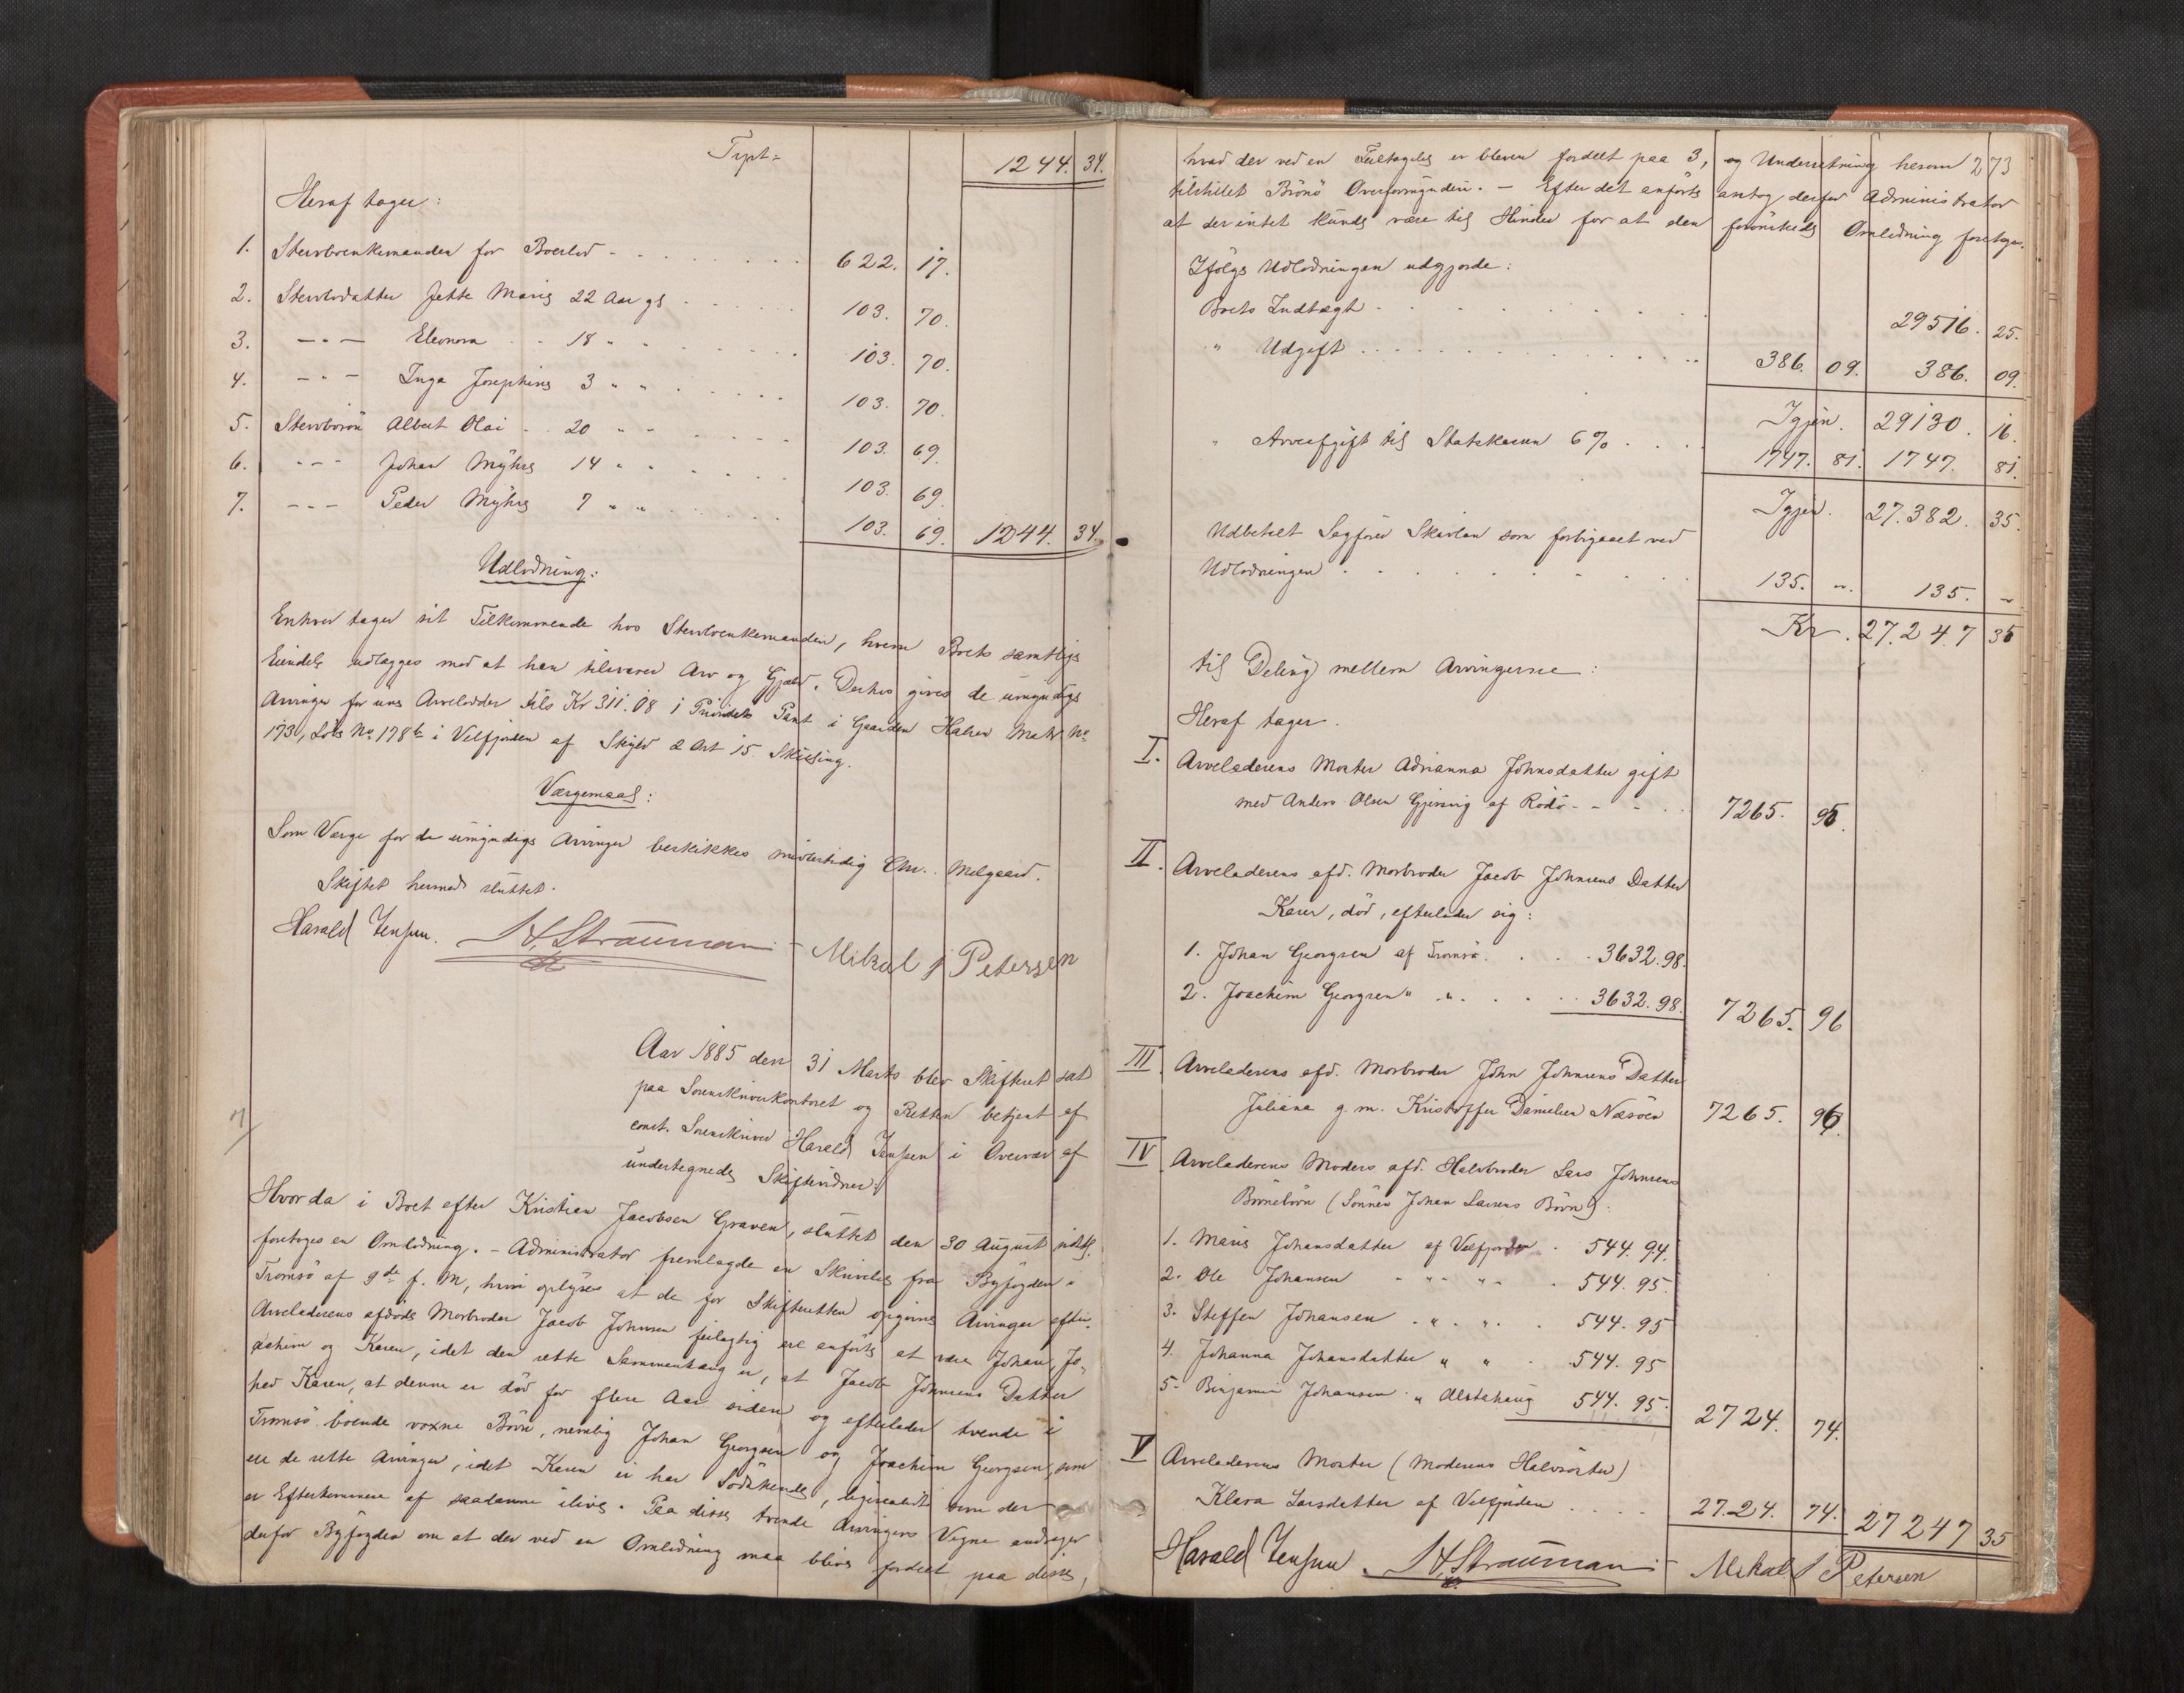 Trpt. 1244. 34.
Heraf tager:
1. Stervboenkemanden for Boeslod 622. 17.
2. Stervbodatter Jette Marie 22 Aar gl 103. 70.
3. -"- Eleonora 18 " 103. 70.
4. -"- Inga Josephine 3 " " 103. 70.
5. Stervbosön Albert Olai 20 " " 103. 69.
6. -"- Johan Myhre 14 " " 103. 69.
7. -"- Peder Myhre 7 " " 103. 69. 1244. 34.
Udlodning:
Enhver tager sit Tilkommende hos Stervboenkemanden, hvem Boets samtlige
Eiendele udlægges mod at han tilsvarer Arv og Gjæld. Derhos gives de umyndige
Arvinger for sine Arvelodder tils Kr 311.08 i Prioritets Pant i Gaarden Halsen Matr No
173, Löb No 178b i Velfjorden af Skyld 2 Ort 15 Skilling.
Værgemaal:
Som Værge for de umyndige Arvinger beskikkes midlertidig Chr. Melgaard.
Skiftet hermed sluttet.
Harald Jensen. H. Strauman Mikal J Petersen
Aar 1885 den 31 Marts blev Skifteret sat
paa Sorenskriverkontoret og Retten betjent af
const. Sorenskriver Harald Jensen i Overvær af
undertegnede Skiftevidner:
7/
Hvor da i Boet efter Kristian Jacobsen Graven, sluttet den 30 August sidstl.
foretoges en Omlodning. - Administrator fremlagde en Skrivelse fra Byfogden i
Tromsö af 9de f. M, hvori oplyses at de for Skifteretten opgivne Arvinger efter
Arveladerens afdöde Morbroder Jacob Johnsen feilagtig ere anförte at være Johan, Jo-
achim og Karen, idet den rette Sammenhæng er, at Jacob Johnsens Datter
hed Karen, at denne er död for flere Aar siden og efterlader tvende i
Tromsö boende voxne Börn, nemlig Johan Georgsen og Joachim Georgsen, som
ere de rette Arvinger, idet Karen ei har Södskende, ligesaalidt som der
er Efterkommere af saadanne ilive. Paa disse tvende Arvingers Vegne andrager
derfor Byfogden om at der ved en Omlodning maa blive fordelt paa disse,
hvad der ved en Feiltagelse er bleven fordelt paa 3, og Underretning herom 273
tilstillet Brönö Overformynderi. - Efter det anförte antog derfor Administrator
at der intet kunde være til Hinder for at den forönskede Omlodning foretoges.
Ifölge Udlodningen udgjorde:
Boets Indtægt 29516. 25.
" Udgift 386. 09. 386. 09.
Igjen. 29130. 16.
" Arveafgift til Statskassen 6% 1747. 81. 1747. 81.
Igjen. 27.382. 35.
Udbetalt Sagförer Skavlan som forbigaaet ved
Udlodningen 135. " 135. "
Kr. 27.247 35
til Deling mellem Arvingerne:
Heraf tager.
I. Arveladerens Moster Adrianna Johnsdatter gift
med Anders Olsen Gjersvig af Rödö 7265. 95.
II. Arveladerens afd. Morbroder Jacob Johnsens Datter
Karen, död, efterlader sig:
1. Johan Georgsen af Tromsö 3632.98.
2. Joachim Georgsen " " 3632.98. 7265. 96
III. Arveladerens afd. Morbroder John Johnsens Datter
Juliana g. m. Kristoffer Danielsen Næsöen 7265. 96.
IV Arveladerens Moders afd. Halvbroder Lars Johnsens
Börnebörn (Sönnen Johan Larsens Börn):
1. Marie Johansdatter af Velfjorden 544. 94.
2. Ole Johansen " " 544. 95.
3. Steffen Johansen " " 544. 95
4. Johanna Johansdatter " " 544. 95
5. Benjamin Johansen " Alstahaug 544. 95. 2724. 74.
V Arveladerens Moster (Moderens Halvsöster)
Klara Larsdatter af Velfjorden 27.24. 74. 27247 35
Harald Jensen. H. Strauman Mikal J Petersen